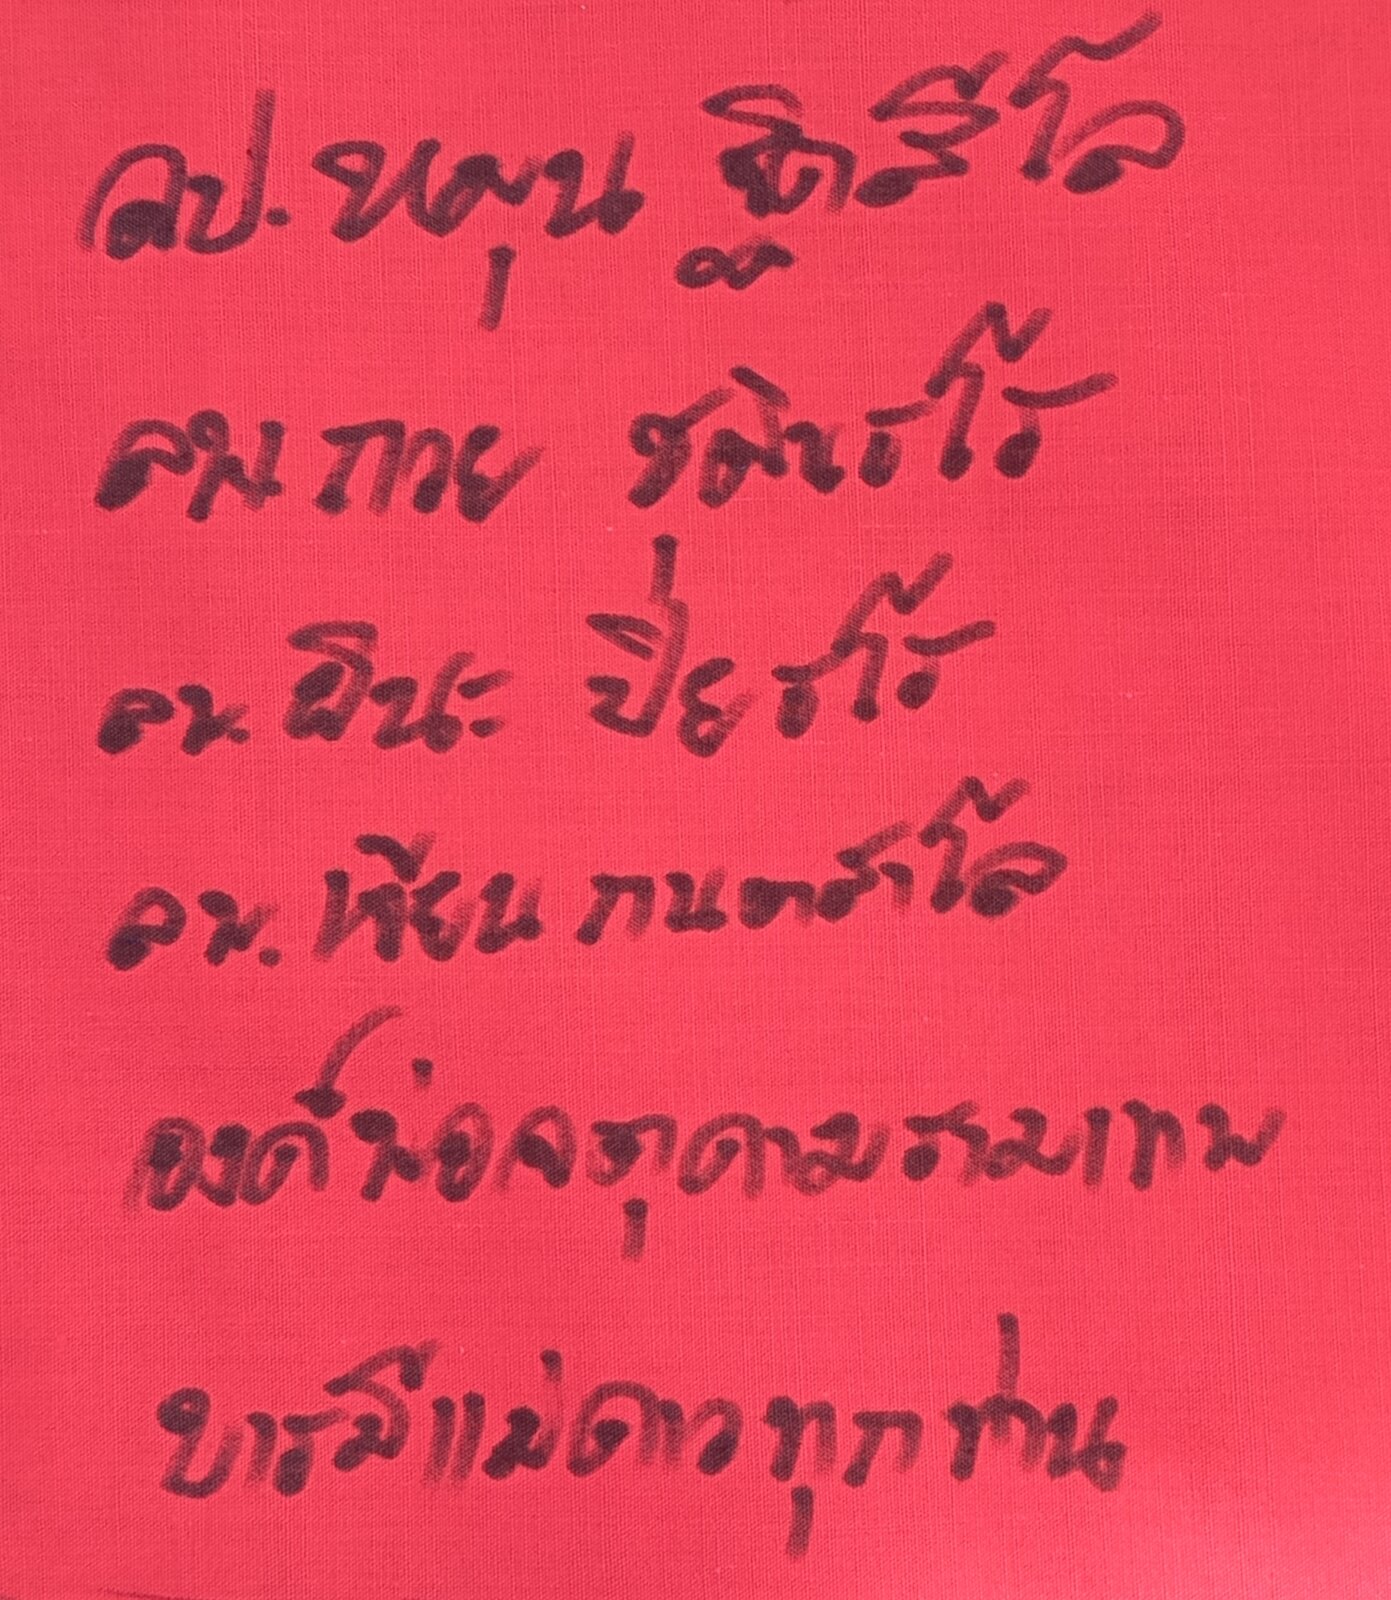 ลป.หมุน ฐิตสีโล
ลพ กวย ชุตินฺธโร
ลพ. มินะ ปิยธโร
ลพ. เทียน กนฺตสีโล
องค์พ่อจตุคามรามเทพ
บารมีแม่ดาวทุกท่าน